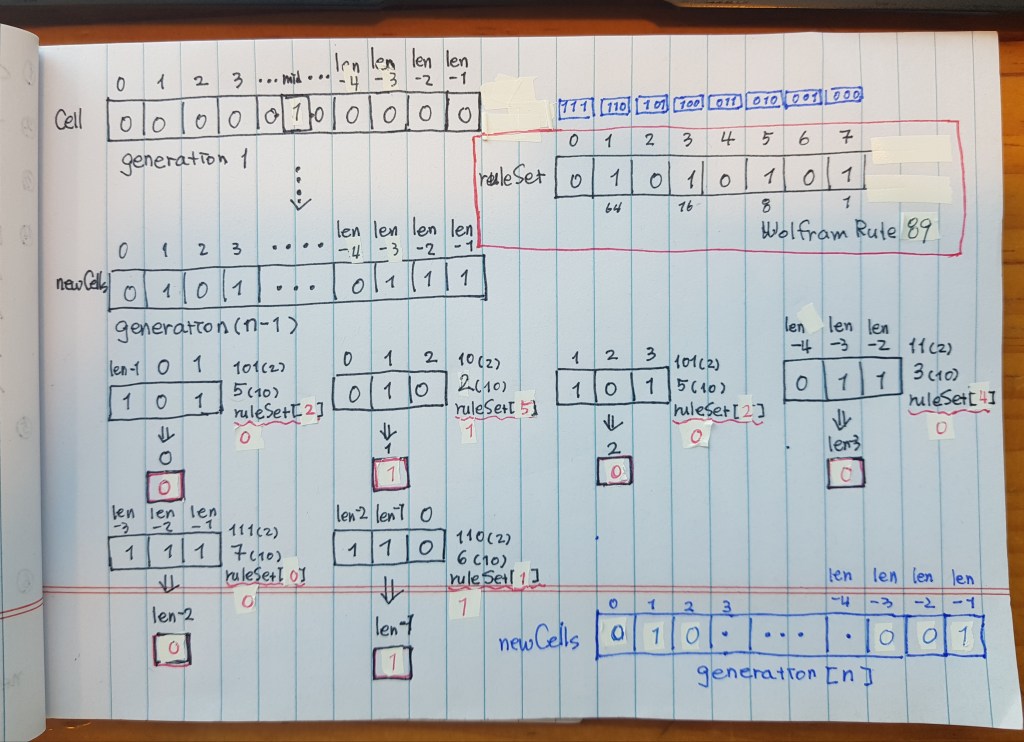 0 1 2 3 ... mid ... len-4 len-3 len-2 len-1
Cell 0 0 0 0 0 1 0 0 0 0 0
generation 1
111 110 101 100 011 010 001 000
0 1 2 3 4 5 6 7
ruleSet 0 1 0 1 0 1 0 1
64 16 8 1
Wolfram Rule 89
0 1 2 3 .... len-4 len-3 len-2 len-1
newCells 0 1 0 1 ... 0 1 1 1
generation(n-1)
len-1 0 1
1 0 1
101(2)
5(10)
ruleSet[2]
0
⇓
0
0
0 1 2
0 1 0
10(2)
2(10)
ruleSet[5]
1
⇓
1
1
1 2 3
1 0 1
101(2)
5(10)
ruleSet[2]
0
⇓
2
0
len-4 len-3 len-2
0 1 1
11(2)
3(10)
ruleSet[4]
0
⇓
len3
0
len-3 len-2 len-1
1 1 1
111(2)
7(10)
ruleSet[0]
0
⇓
len-2
0
len-2 len-1 0
1 1 0
110(2)
6(10)
ruleSet[1]
1
⇓
len-1
1
0 1 2 3 len-4 len-3 len-2 len-1
newCells 0 1 0 . ... . 0 0 1
generation[n]